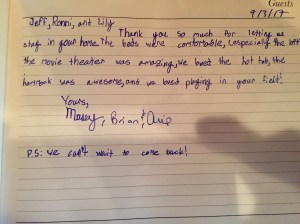 Guests
9/3/17
Jeff, Ronni, and Lily
Thank you so much for letting us
stay in your home. The beds were comfortable, (especially the loft)
the movie theater was amazing, we loved the hot tub, the
hammock was awesome, and we loved playing in your field!
Yours,
Brian &
P.S: We can't wait to come back!